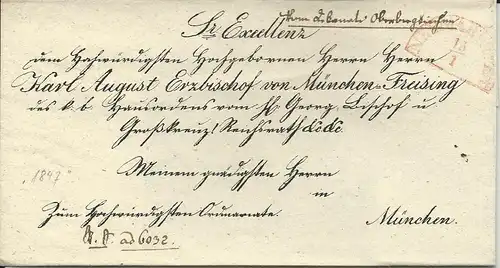 vom Dekanate Oberbergkirchen
Sr Excellenz
dem Hochwürdigsten Hochgebornen Herrn Herrn
Karl August Erzbischof von München-Freising
des k. b. Hausordens vom hl. Georg, Bischof u
Großkreuz, Reichsrath &c &c.
18
1
Meinem gnädigsten Herrn
"1847"
in
Zum Hochwürdigsten Ordinariate.
München.
ad 6032.